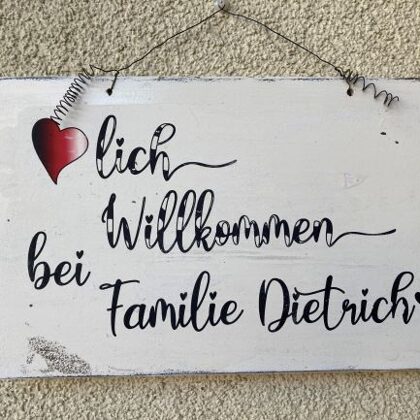 lich
Willkommen
bei
Familie Dietrich